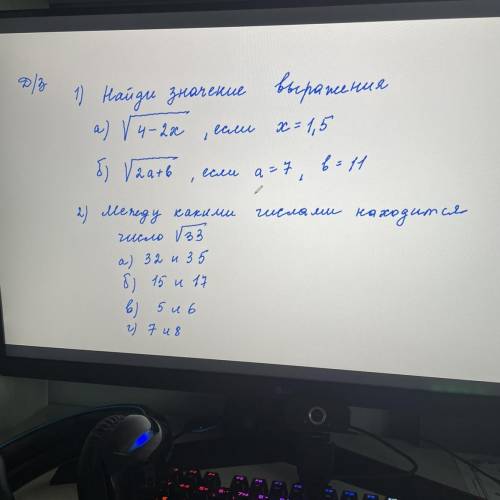 Д/з
1) Найди значение выражения
а) √4-2x , если x=1,5
б) √2a+b , если a=7, b=11
2) Между какими числами находится
число √33
а) 32 и 35
б) 15 и 17
в) 5 и 6
г) 7 и 8